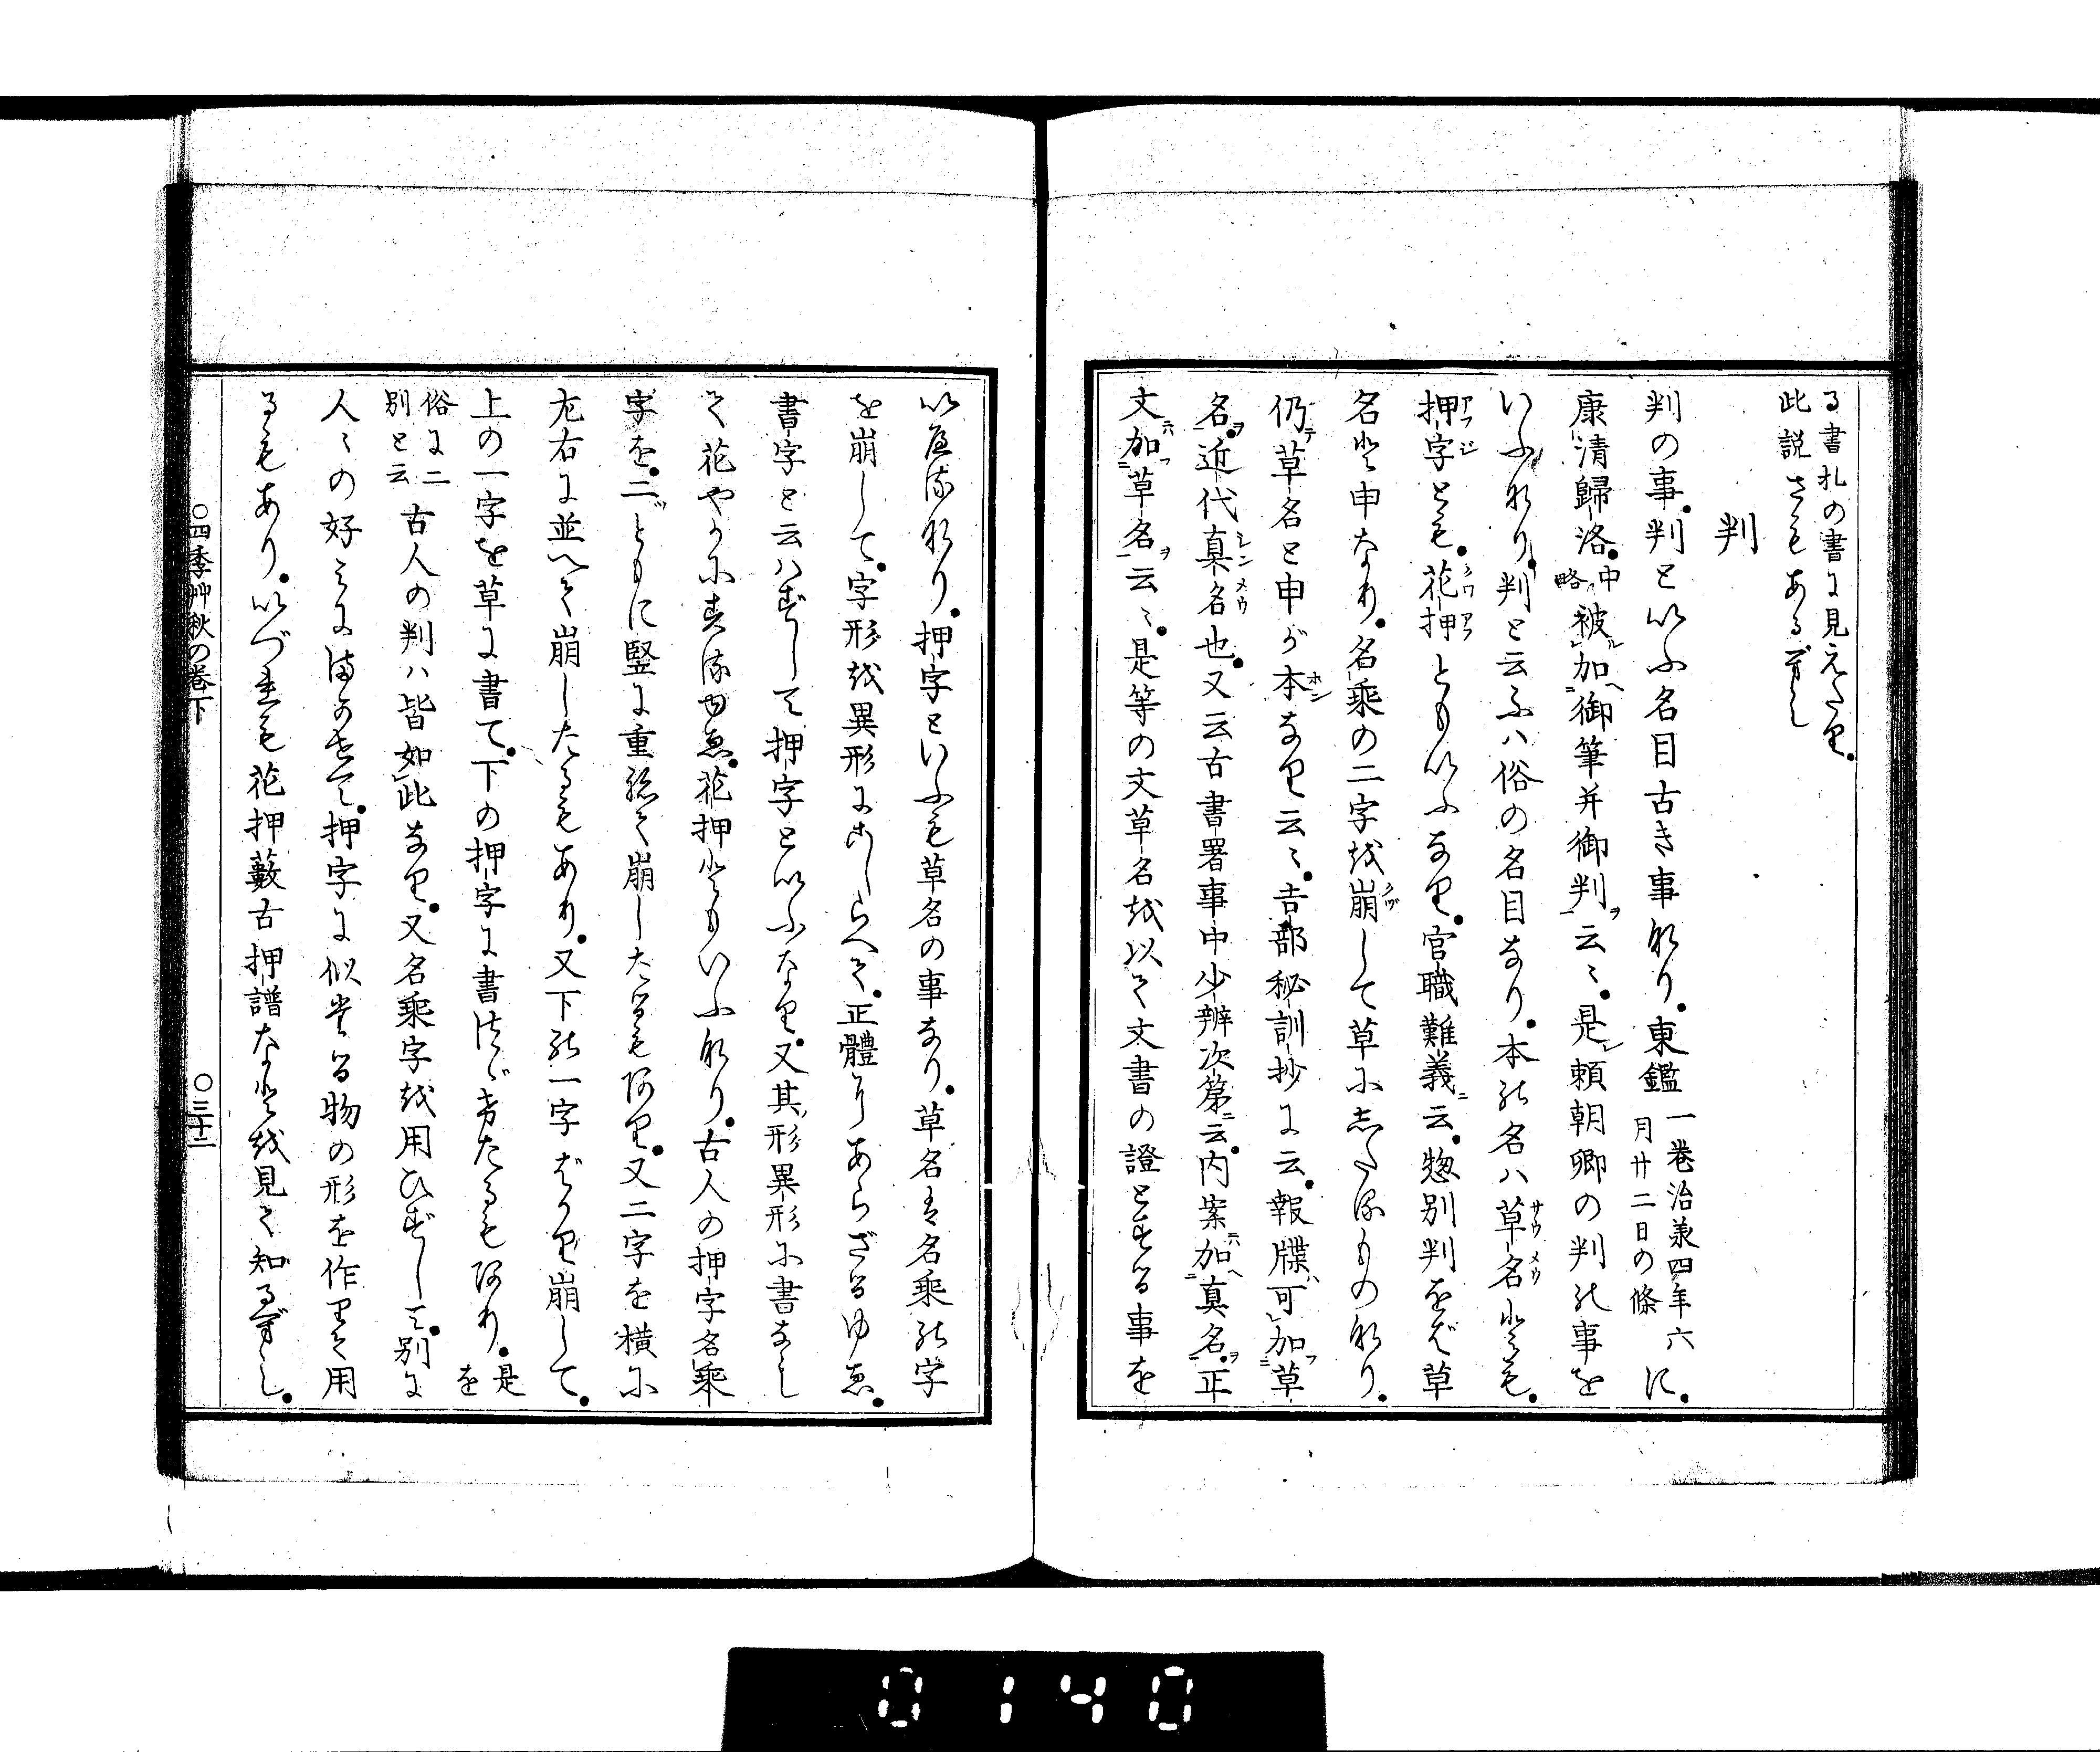 る書札の書に見えたり。
此説さもあるべし
判
判の事。判といふ名目古き事なり。東鑑一巻治承四年六月廿二日の條に。
康清歸洛。中略被加御筆并御判云〻。是頼朝卿の判の事を
いふなり。判と云ふハ俗の名目なり。本の名ハ草名とも。
押字とも。花押ともいふなり。官職難義云。惣別判をば草
名と申なり。名乗の二字を崩して草にしたるもの なり。
仍草名と申が本なり云〻。吉部秘訓抄に云。報牒可加草
名。近代真名也。又云古書署事中少辨次第云。内案加真名。正
文加草名云〻。是等の文草名を以て文書の證とする事を
いへるなり。押字といふも草名の事なり。草名は名乗の字
を崩して。字形を異形にこしらへて。正體にあらざるゆゑ。
書字と云ハずして押字といふなり。又其形異形に書なし
て花やかにするゆゑ。花押ともいふなり。古人の押字名乗
字を。二ともに竪に重ねて崩したるもあり。又二字を横に
左右に並べて崩したるもあり。又下の一字ばかり崩して。
上の一字を草に書て。下の押字に書つゞきたるもあり。是を
俗に二別と云古人の判ハ皆如此なり。又名乗字を用ひずして。別に
人〻の好ミにまかせて。押字に似たる物の形を作りて用
るもあり。いづれも花押藪古押譜などを見て知るべし。
○四季艸秋の巻下
○三十二
0140